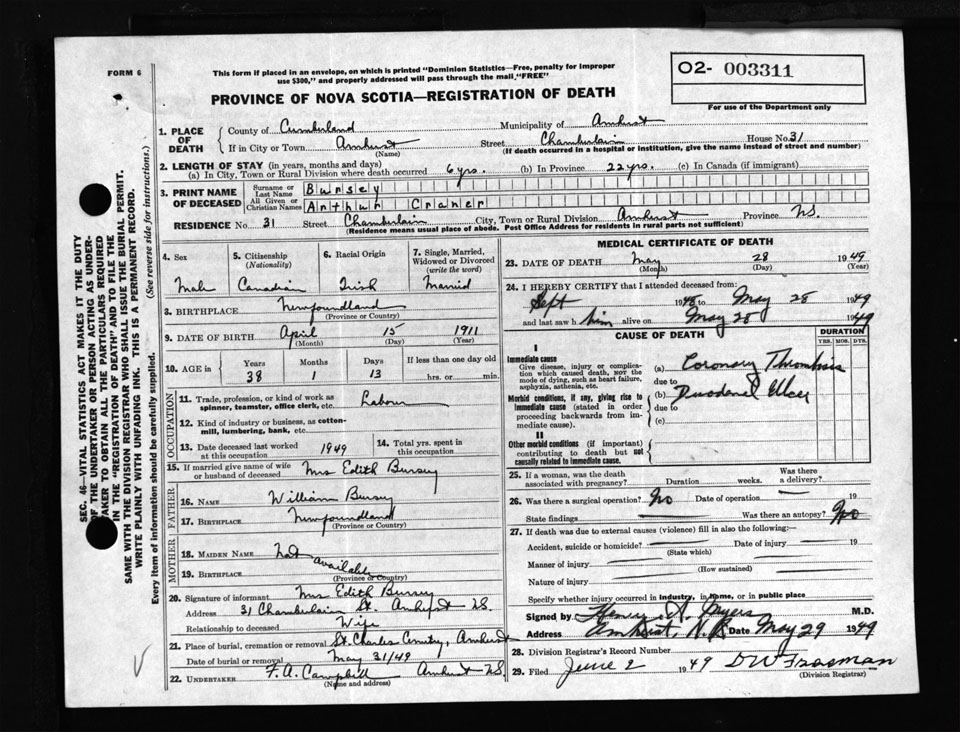 FORM 6
This form if placed in an envelope, on which is printed "Dominion Statistics—Free, penalty for improper
use $300," and properly addressed will pass through the mail "FREE"
PROVINCE OF NOVA SCOTIA—REGISTRATION OF DEATH
02- 003311
For use of the Department only
SEC. 46—VITAL STATISTICS ACT MAKES IT THE DUTY
OF THE UNDERTAKER OR PERSON ACTING AS UNDER-
TAKER TO OBTAIN ALL THE PARTICULARS REQUIRED
IN THE "REGISTRATION OF DEATH" AND TO FILE THE
SAME WITH THE DIVISION REGISTRAR WHO SHALL ISSUE THE BURIAL PERMIT.
WRITE PLAINLY WITH UNFADING INK. THIS IS A PERMANENT RECORD.
Every item of information should be carefully supplied. (See reverse side for instructions.)
1. PLACE OF DEATH
County of Cumberland Municipality of Amherst
If in City or Town Amherst Street Chamberlain House No. 31
(Name) (If death occurred in a hospital or institution, give the name instead of street and number)
2. LENGTH OF STAY (in years, months and days)
(a) In City, Town or Rural Division where death occurred 6 yrs. (b) In Province 22 yrs. (c) In Canada (if immigrant)
3. PRINT NAME OF DECEASED
Surname or Last Name Bursey
All Given or Christian Names Arthur Craner
RESIDENCE No. 31 Street Chamberlain City, Town or Rural Division Amherst Province N.S.
(Residence means usual place of abode. Post Office Address for residents in rural parts not sufficient)
4. Sex Male
5. Citizenship (Nationality) Canadian
6. Racial Origin Irish
7. Single, Married, Widowed or Divorced (write the word) Married
8. BIRTHPLACE Newfoundland
(Province or Country)
9. DATE OF BIRTH April 15 1911
(Month) (Day) (Year)
10. AGE in Years 38 Months 1 Days 13 If less than one day old hrs. or min.
OCCUPATION
11. Trade, profession, or kind of work as
spinner, teamster, office clerk, etc. Labour
12. Kind of industry or business, as cotton-
mill, lumbering, bank, etc.
13. Date deceased last worked
at this occupation 1949
14. Total yrs. spent in
this occupation
15. If married give name of wife
or husband of deceased Mrs Edith Bursey
FATHER
16. NAME William Bursey
17. BIRTHPLACE Newfoundland
(Province or Country)
MOTHER
18. MAIDEN NAME Not
19. BIRTHPLACE available
(Province or Country)
20. Signature of informant Mrs Edith Bursey
Address 31 Chamberlain St. Amherst N.S.
Relationship to deceased Wife
21. Place of burial, cremation or removal St. Charles Cemetry, Amherst
Date of burial or removal May 31/49
22. UNDERTAKER F. A. Campbell Amherst N.S.
(Name and address)
MEDICAL CERTIFICATE OF DEATH
23. DATE OF DEATH May 28 1949
(Month) (Day) (Year)
24. I HEREBY CERTIFY that I attended deceased from:
Sept 1948 to May 28 1949
and last saw him alive on May 28 1949
CAUSE OF DEATH
DURATION
YRS. MOS. DYS.
I
Immediate cause
Give disease, injury or complica-
tion which caused death, not the
mode of dying, such as heart failure,
asphyxia, asthenia, etc.
(a) Coronary Thrombosis
due to
Morbid conditions, if any, giving rise to
immediate cause (stated in order
proceeding backwards from im-
mediate cause).
(b) Duodenal Ulcer
due to
(c)
II
Other morbid conditions (if important)
contributing to death but not
causally related to immediate cause.
25. If a woman, was the death
associated with pregnancy? Duration weeks. Was there
a delivery?
26. Was there a surgical operation? No Date of operation 19
State findings Was there an autopsy? No
27. If death was due to external causes (violence) fill in also the following:—
Accident, suicide or homicide? Date of injury 19
(State which)
Manner of injury
(How sustained)
Nature of injury
Specify whether injury occurred in industry, in home, or in public place
Signed by Henry A. Myers M.D.
Address Amherst, N.S. Date May 29 1949
28. Division Registrar's Record Number
29. Filed June 2 1949
(Division Registrar)